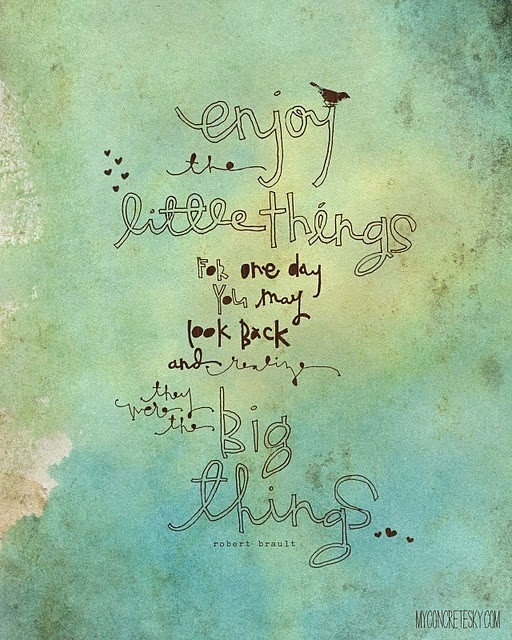 enjoy
the
little things
For one day
You may
look Back
and realize
they
were
the
Big
things
robert brault
MYCONCRETESKY.COM